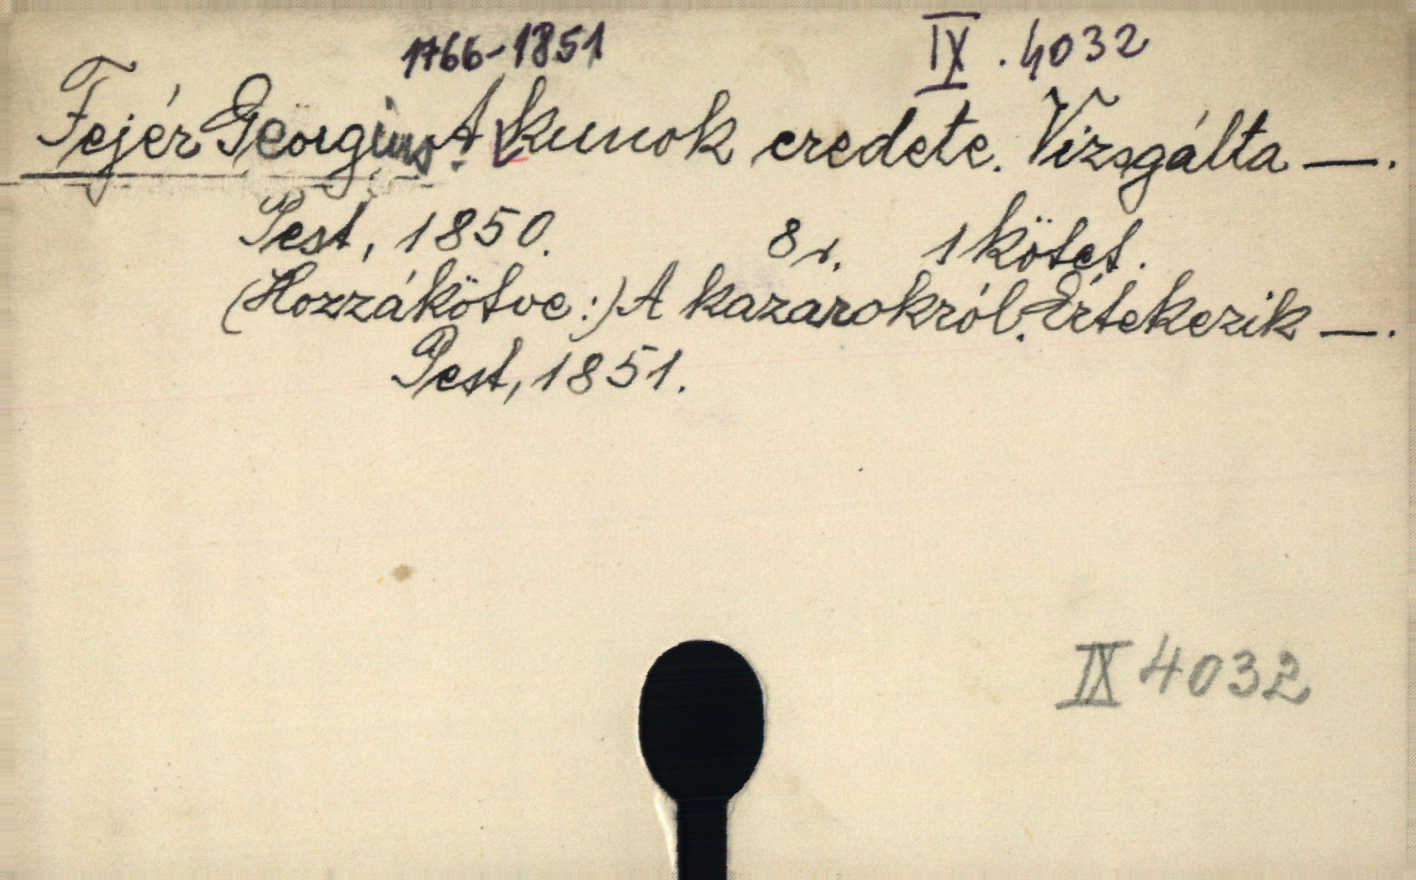 1766-1851
IX. 4032
Fejér Georgius. A kunok eredete. Vizsgálta —.
Pest, 1850. 8r. 1 kötet.
(Hozzákötve:) A kazarokról. Értekezik —.
Pest, 1851.
IX 4032